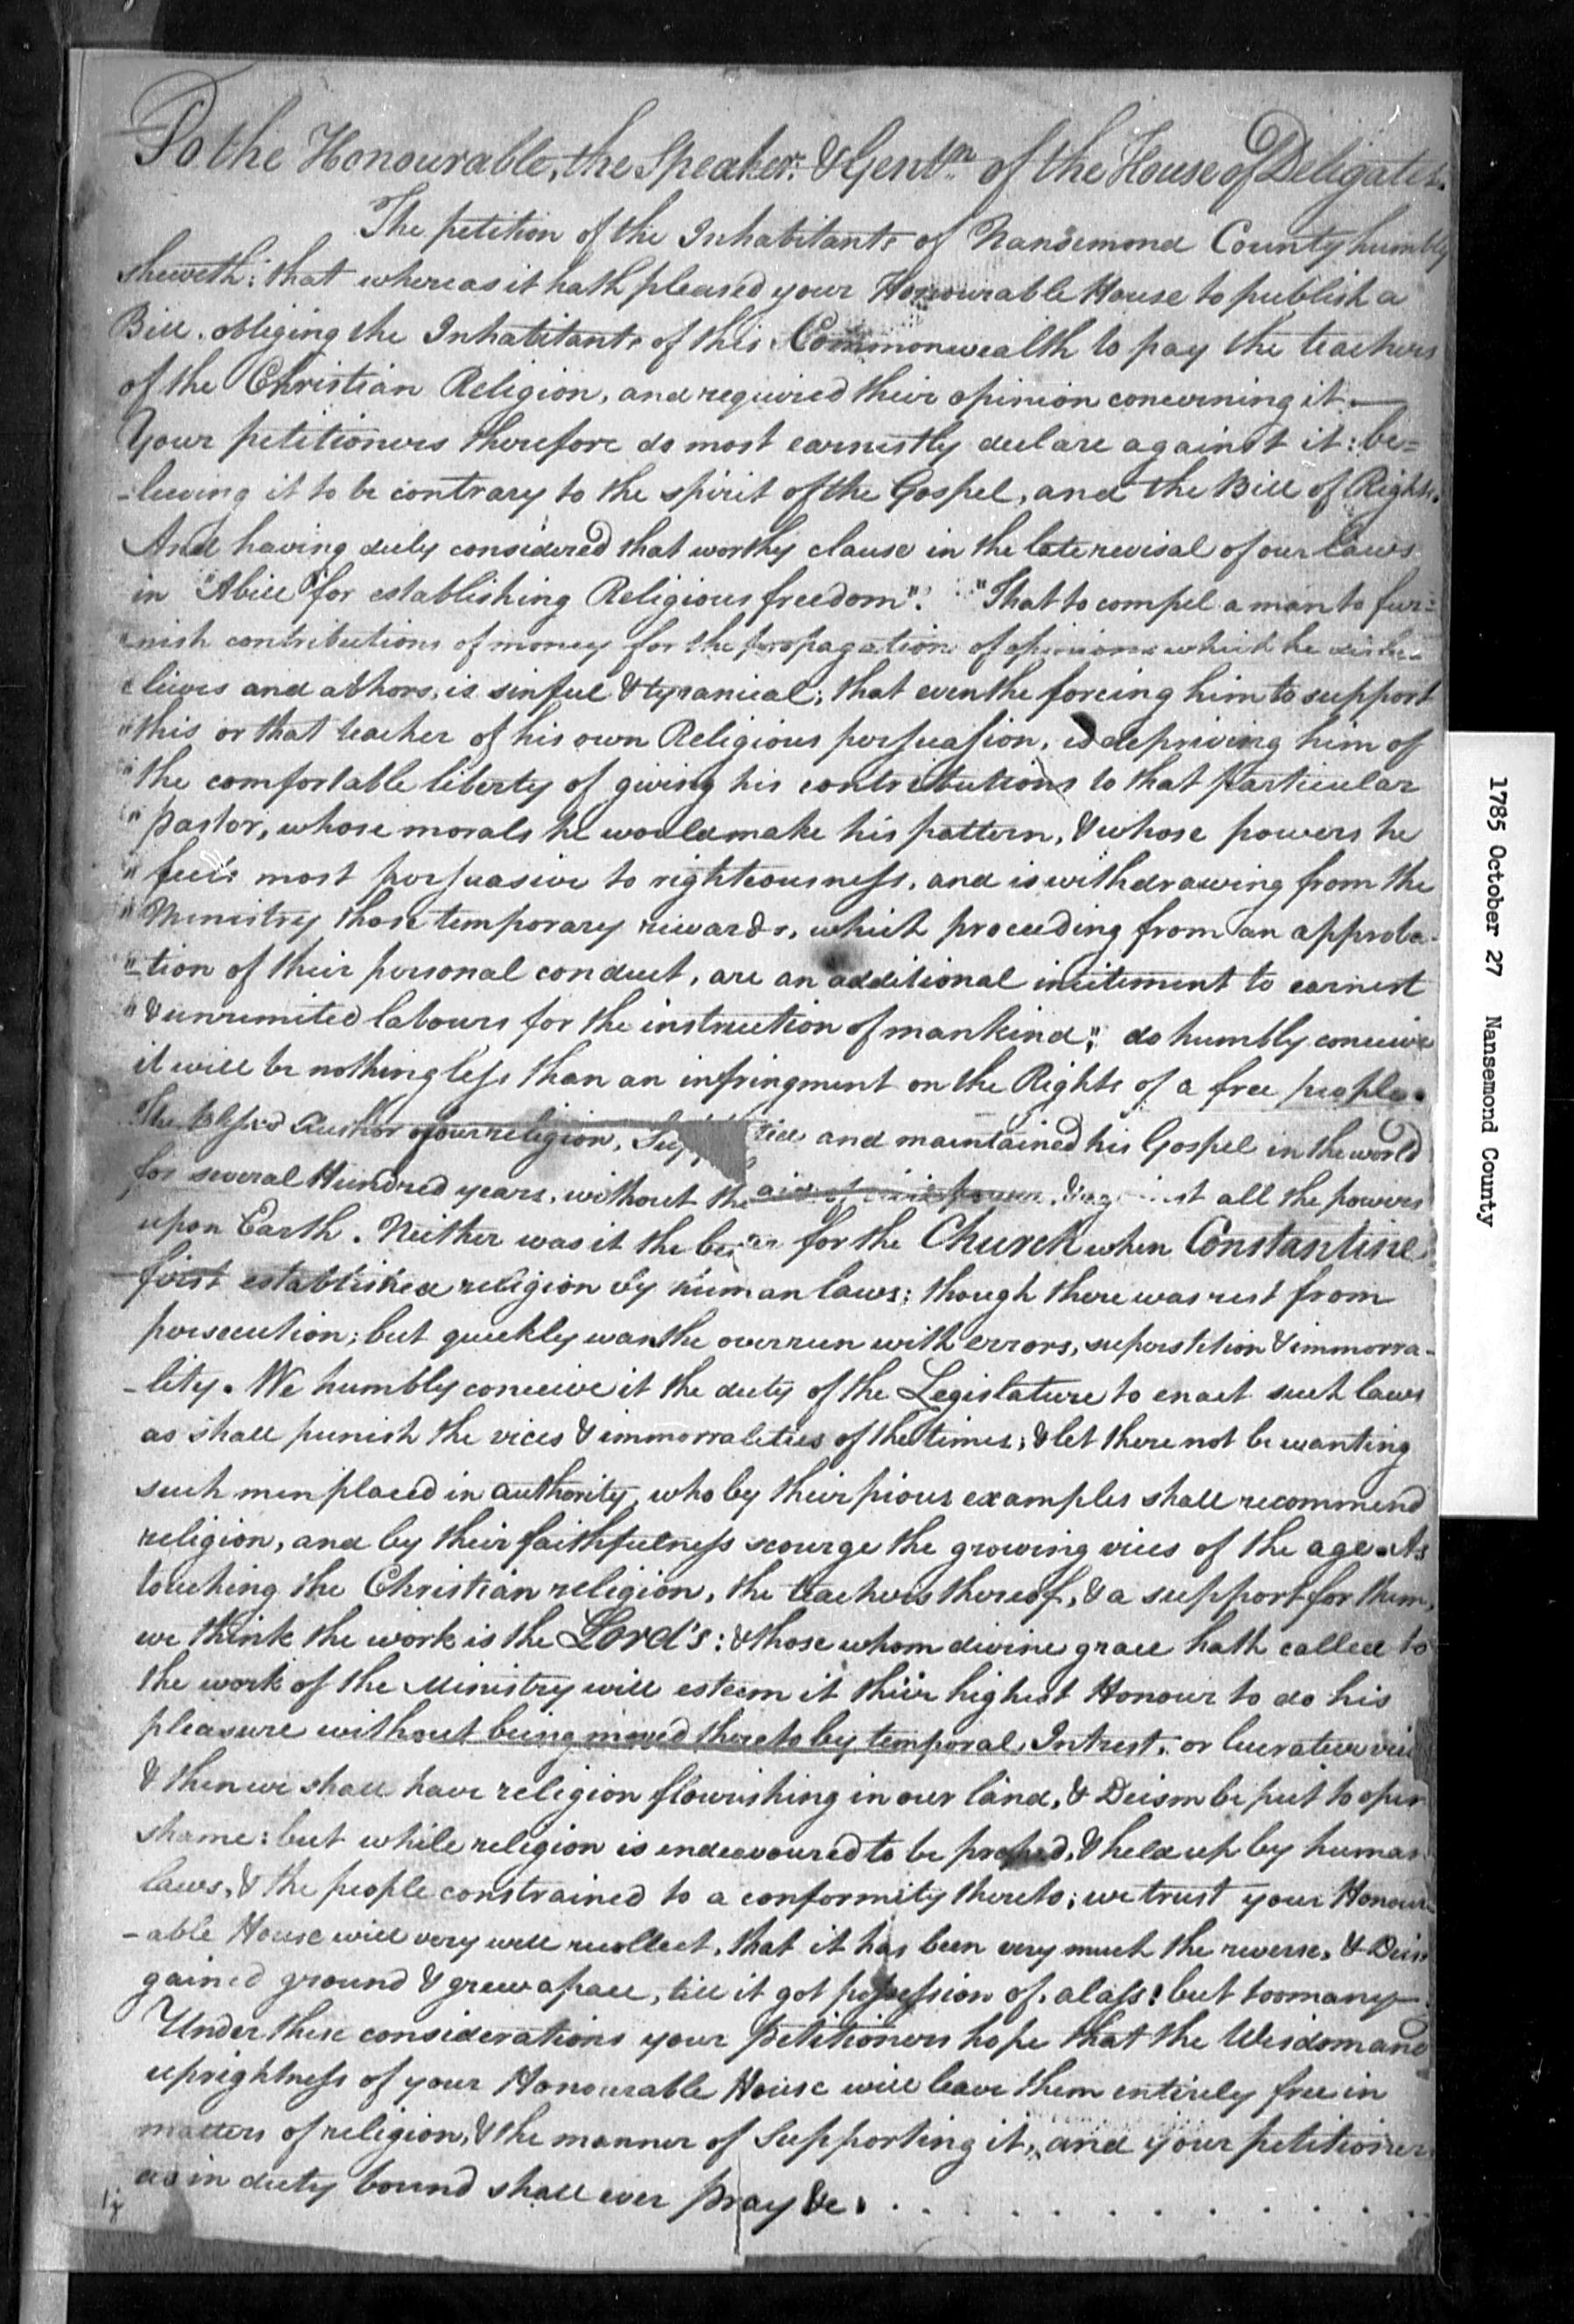 To the Honourable, the Speaker. & Gentm. of the House of Deligates.
The petition of the Inhabitants of Nansemond County humbly
sheweth: that whereas it hath pleased your Honourable House to publish a
Bill. obliging the Inhabitants of this Commonwealth to pay the teachers
of the Christian Religion, and required their opinion concerning it.—
Your petitioners therefore do most earnestly declare against it: be=
-lieving it to be contrary to the spirit of the Gospel, and the Bill of Rights.
And having duly considered that worthy clause in the late revisal of our laws
in "A bill" for establishing Religious freedom". "That to compel a man to fur=
"nish contributions of money for the propagation of opinions which he disbe-
"lieves and abhors, is sinful & tyranical; that even the forcing him to support
"this or that teacher of his own Religious persuasion, is depriving him of
"the comfortable liberty of giving his contributions to that particular
"pastor, whose morals he would make his pattern, & whose powers he
"feels most persuasive to righteousness, and is withdrawing from the
"Ministry those temporary rewards, which proceeding from an approba-
"tion of their personal conduct, are an additional incitement to earnest
"& unremited labours for the instruction of mankind;" do humbly conceive
it will be nothing less than an infringment on the Rights of a free people.
The blessed Author of our religion, and maintained his Gospel in the world
for several Hundred years, without the aid of power, & against all the powers
upon Earth. Neither was it the better for the Church when Constantine
first established religion by human laws; though there was rest from
persecution; but quickly was she overrun with errors, superstition & immorra-
-lity. We humbly conceive it the duty of the Legislature to enact such laws
as shall punish the vices & immorralities of the times; & let there not be wanting
such men placed in authority, who by their pious examples shall recommend
religion, and by their faithfulness scourge the growing vices of the age. As
touching the Christian religion, the teachers thereof, & a support for them,
we think the work is the Lord's: & those whom divine grace hath called to
the work of the Ministry will esteem it their highest Honour to do his
pleasure without being moved thereto by temporal Intrest, or lucrative
& then we shall have religion flourishing in our land, & Deism be put to open
shame: but while religion is endeavoured to be proped, & held up by human
laws, & the people constrained to a conformity thereto; we trust your Honour
-able House will very well recollect, that it has been very much the reverse, & Deism
gained ground & grew apace, till it got possession of, alass! but too many—
Under these considerations your petitioners hope that the Wisdom and
uprightness of your Honourable House will leave them entirely free in
matters of religion, & the manner of Supporting it, and your petitioners
as in duty bound shall ever pray &c.
1785 October 27 Nansemond County